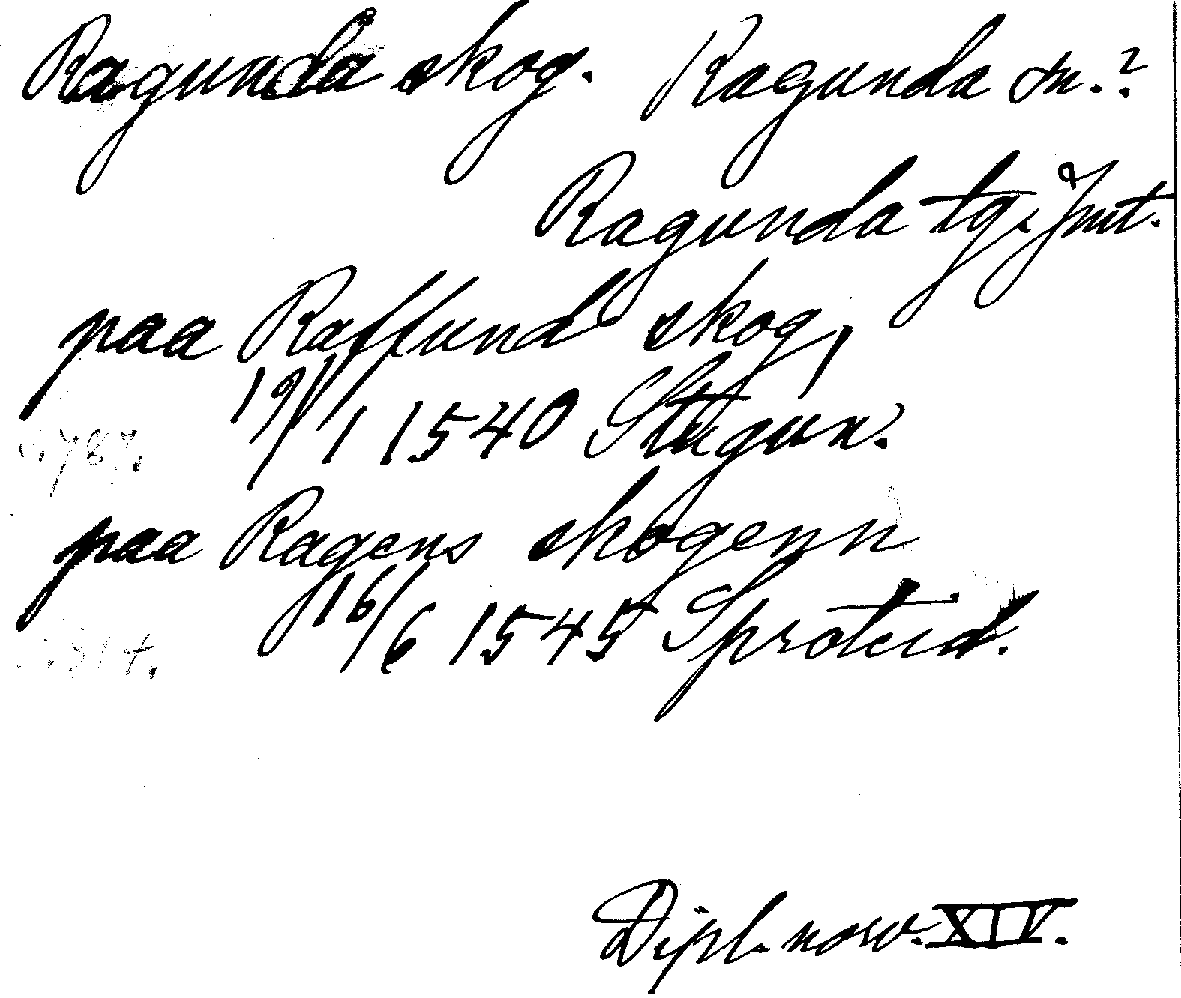 Ragunda skog. Ragunda sn.?
Ragunda tg. Jmt.
paa Raffund skog,
19/1 1540 Stugun.
paa Ragens skogenn
16/6 1545 Sproteid.
Dipl. norv. XIV.